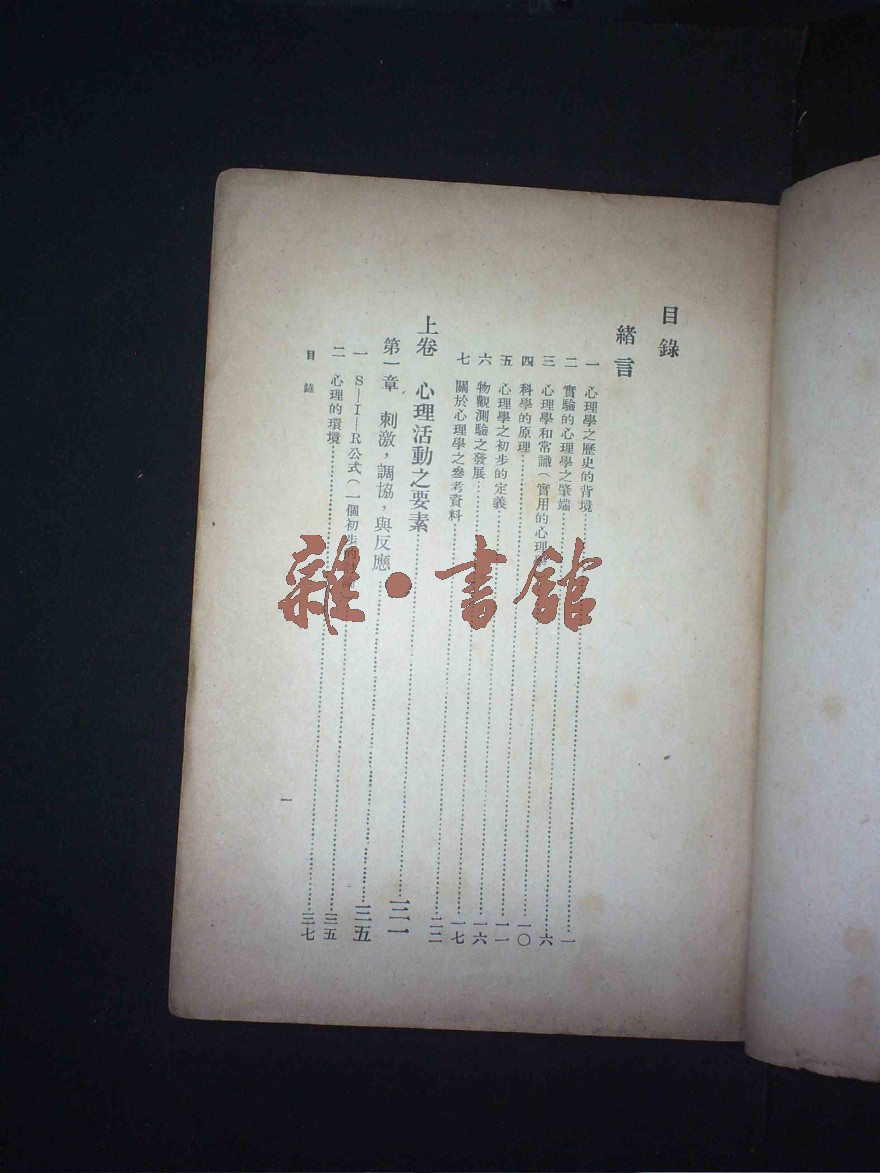 目錄
緒言
一 心理學之歷史的背境……一
二 實驗的心理學之肇端……六
三 心理學和常識(實用的心理……一〇
四 科學的原理……一一
五 心理學之初步的定義……一六
六 物觀測驗之發展……一七
七 關於心理學之參考資料……二二
上卷 心理活動之要素……三一
第一章 刺激,調協,與反應……三五
一 S—I—R公式(一個初步……三五
二 心理的環境……三七
目錄
一
雜·書館